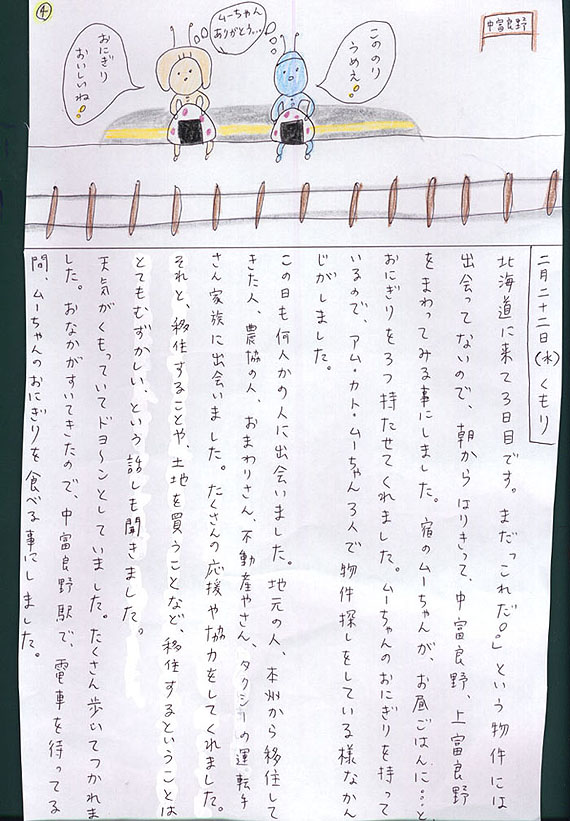 ④
中富良野
このノリ
うめえ!
ムーちゃん
ありがとう…
おにぎり
おいしいね!
二月二十二日(水)くもり
北海道に来て3日目です。まだ「これだ!!」という物件には
出会ってないので、朝からはりきって、中富良野、上富良野
をまわってみる事にしました。宿のムーちゃんが、お昼ごはんに…と、
おにぎりを3つ持たせてくれました。ムーちゃんのおにぎりを持って
いるので、アム・カト・ムーちゃん3人で物件探しをしている様なかん
じがしました。
この日も何人かの人に出会いました。地元の人、本州から移住して
きた人、農協の人、おまわりさん、不動産やさん、タクシーの運転手
さん家族に出会いました。たくさんの応援や協力をしてくれました。
それと、移住することや、土地を買うことなど移住するということは
とてもむずかしい、という話しも聞きました。
天気がくもっていてドヨ〜ンとしていました。たくさん歩いてつかれま
した。おなかがすいてきたので、中富良野駅で、電車を待ってる
間、ムーちゃんのおにぎりを食べる事にしました。